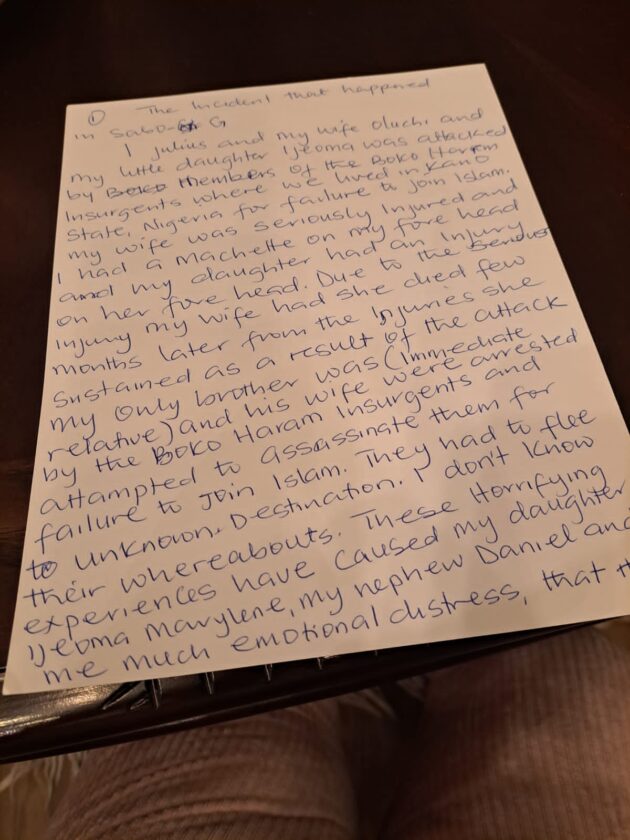 ① The Incident that happened
in Sabo- G
I Julius and my wife Oluchi and
my little daughter Ijeoma was attacked
by Boko Members of the Boko Haram
Insurgents where we lived in Kano
State, Nigeria for failure to join Islam.
my wife was seriously Injured and
I had a machette on my fore head
and my daughter had an Injury
on her fore head. Due to the serious
Injury my wife had she died few
months later from the Injuries she
sustained as a result of the attack
my only brother was (Immediate
relative) and his wife were arrested
by the Boko Haram Insurgents and
attampted to assassinate them for
failure to Join Islam. They had to flee
to unknown. Destination. I don't know
their whereabouts. These Horrifying
experiences have caused my daughter
Ijeoma Marylene, my nephew Daniel and
me much emotional distress, that